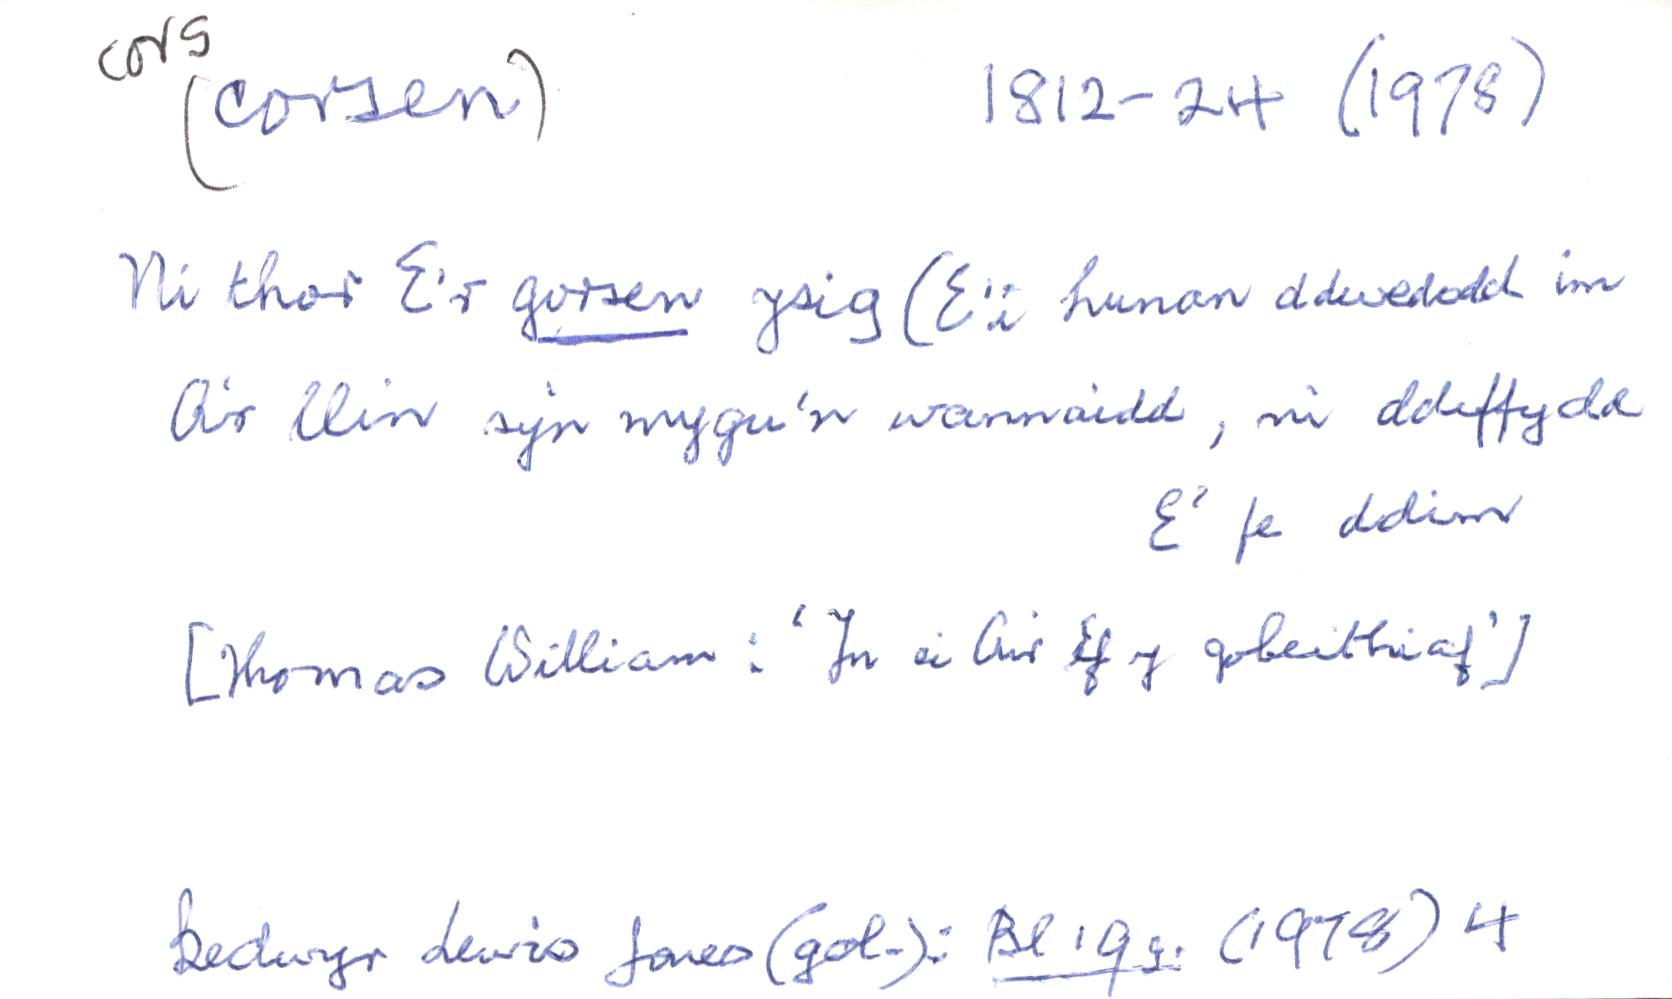 cors
(corsen) 1812-24 (1978)
Ni thor E'r gorsen ysig (E'i hunan ddwedodd im
A'r llin sy'n mygu'n wannaidd, ni ddeffydd
E' fe ddim
[Thomas William: 'Yn ei Air Ef y gobeithiaf']
Bedwyr Lewis Jones (gol.): Bl 19g. (1978) 4